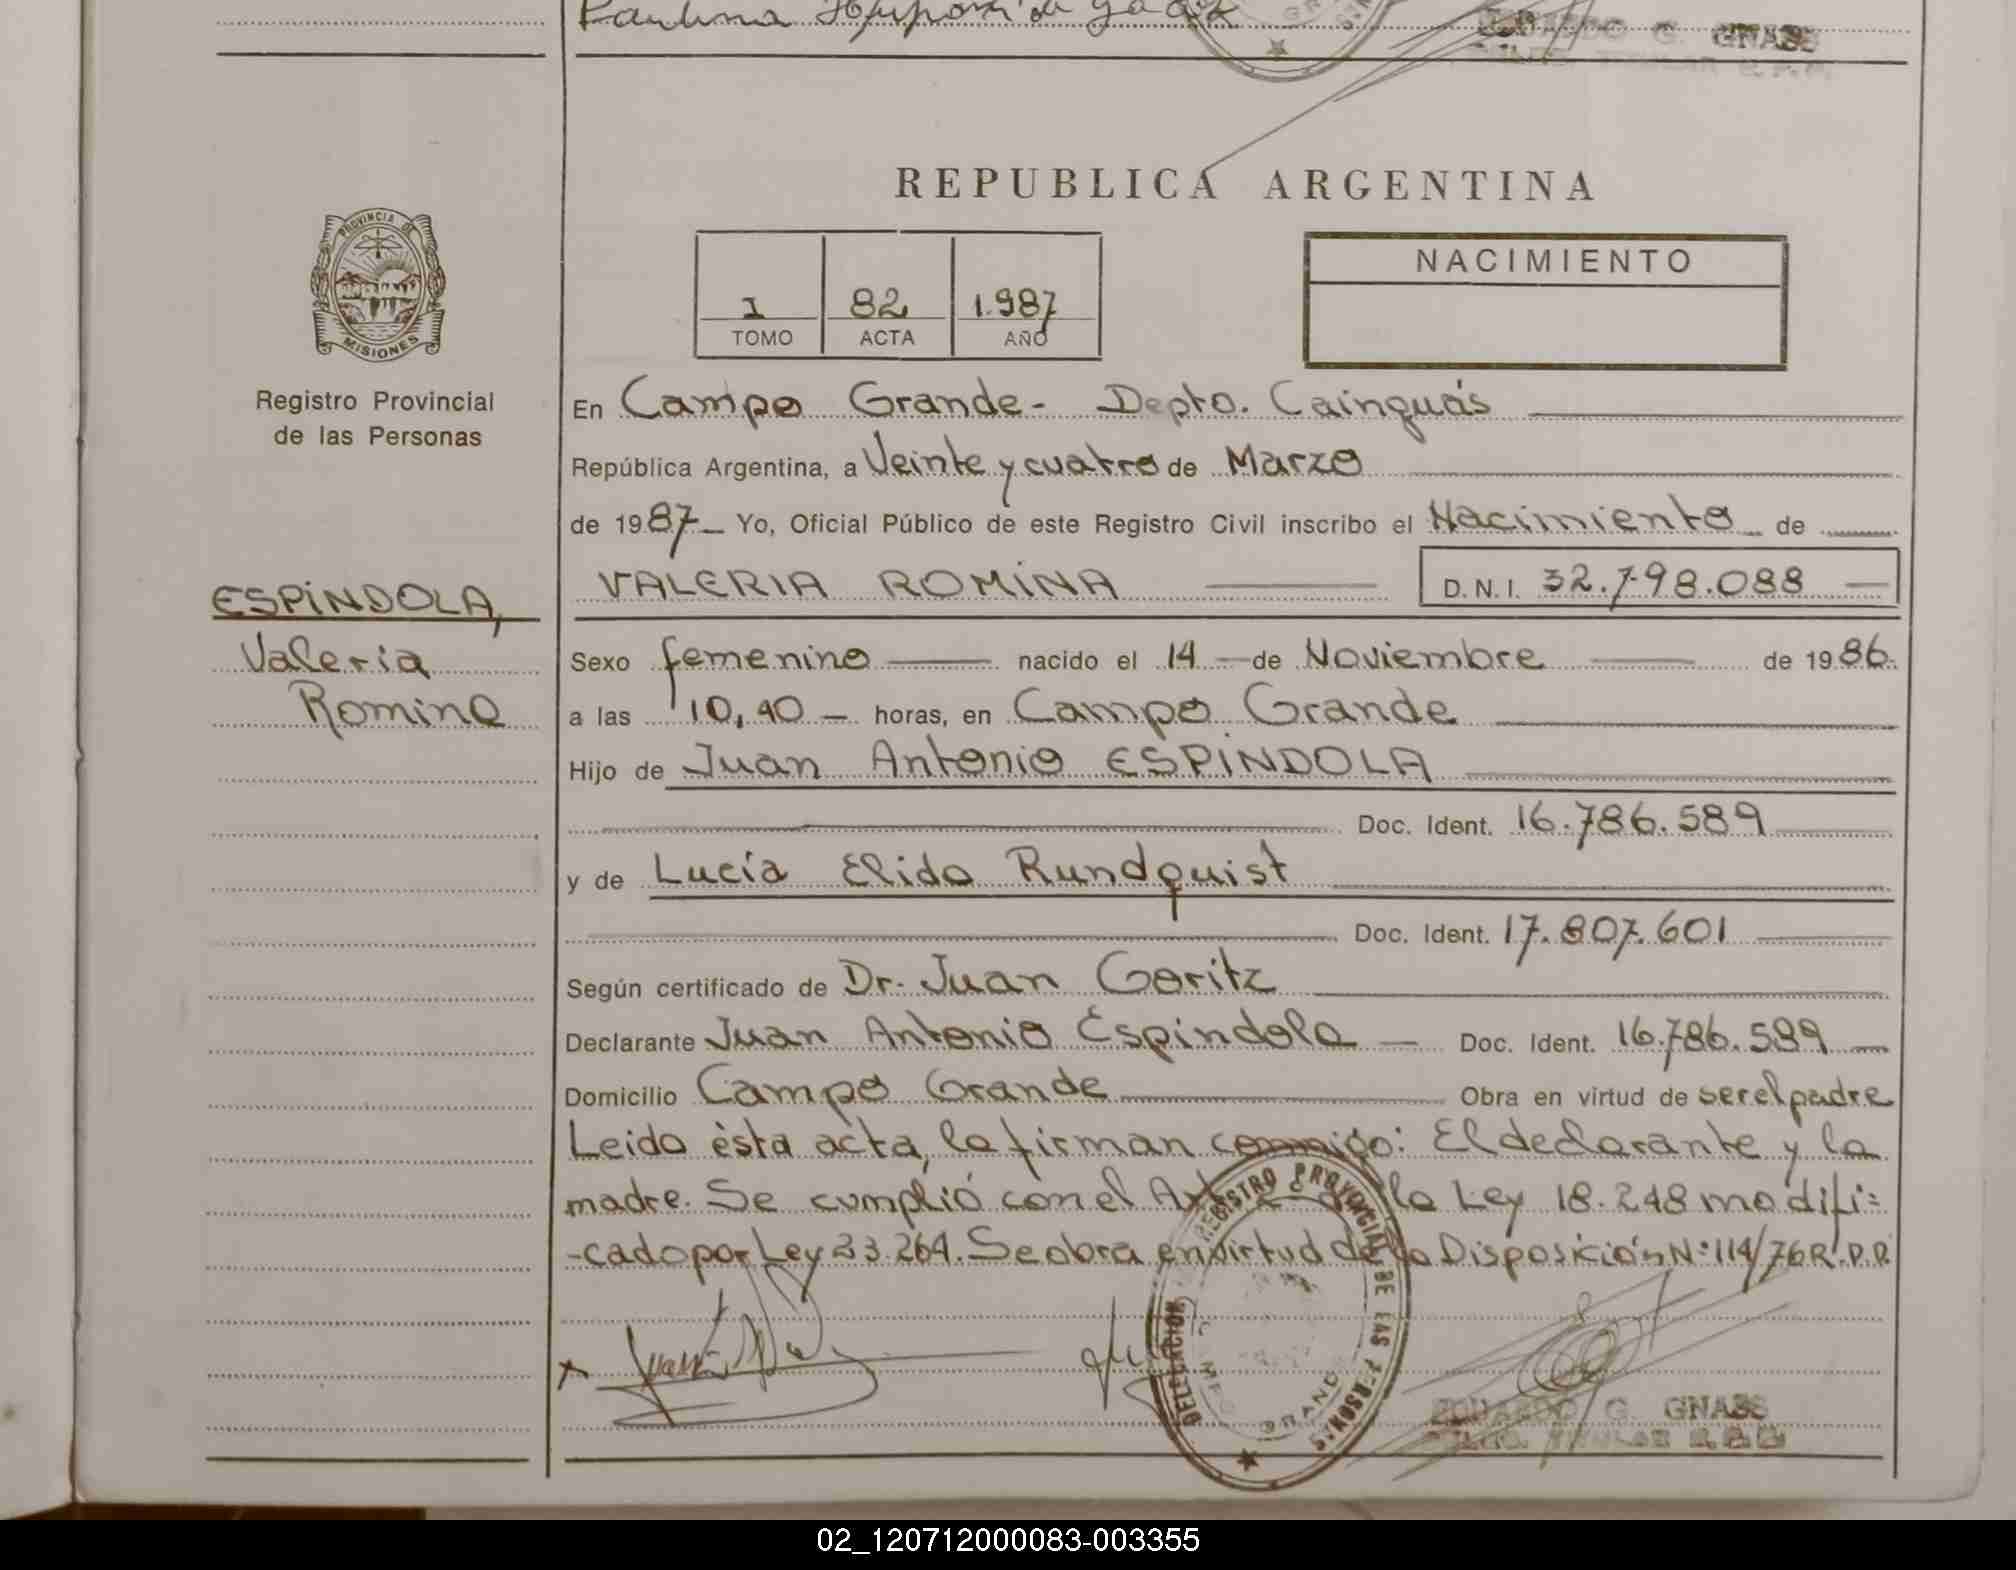 Paulina
EDUARDO G. GNASS
REPUBLICA ARGENTINA
PROVINCIA DE
MISIONES
Registro Provincial
de las Personas
I 82 1.987
TOMO ACTA AÑO
NACIMIENTO
En Campo Grande- Depto. Cainguás
República Argentina, a Veinte y cuatro de Marzo
de 1987 Yo, Oficial Público de este Registro Civil inscribo el Nacimiento de
ESPÍNDOLA,
Valeria
Romina
VALERIA ROMINA D.N.I. 32.798.088
Sexo femenino nacido el 14 de Noviembre de 1986.
a las 10,40 horas, en Campo Grande
Hijo de Juan Antonio ESPÍNDOLA
Doc. Ident. 16.786.589
y de Lucía Elida Rundquist
Doc. Ident. 17.807.601
Según certificado de Dr. Juan Goritz
Declarante Juan Antonio Espíndola Doc. Ident. 16.786.589
Domicilio Campo Grande Obra en virtud de ser el padre
Leido ésta acta, la firman conmigo: El declarante y la
madre. Se cumplió con el Art. de la Ley 18.248 modifi=
-cado por Ley 23.264. Se obra en virtud de la Disposición N° 114/76 R.P.P.
REGISTRO PROVINCIAL DE LAS PERSONAS
DELEGACION
CAMPO GRANDE
EDUARDO G. GNASS
DELEG. TITULAR
02_120712000083-003355